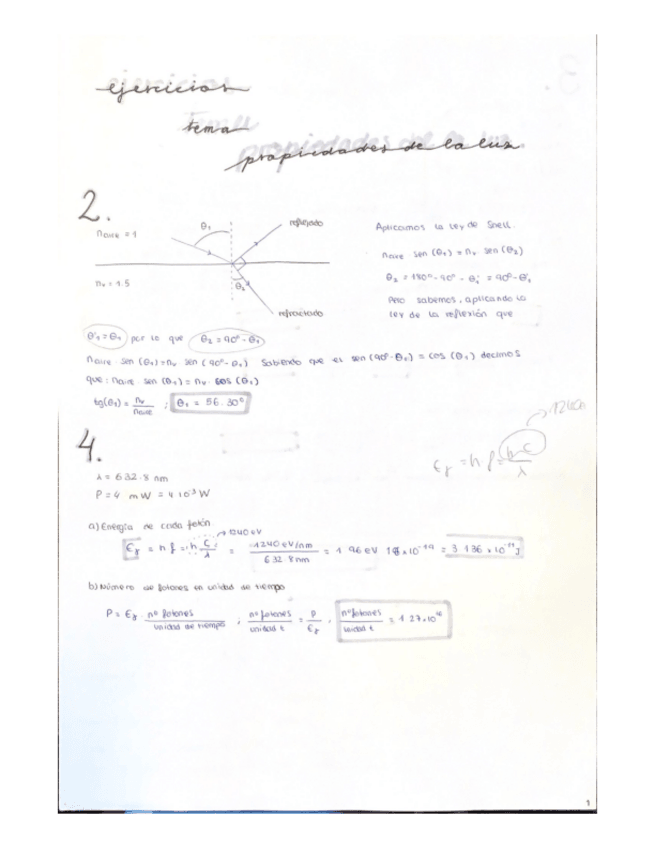 ejercicios
tema
propiedades de la luz
2.
naire = 1
θ1
reflejado
nv = 1.5
θ2
refractado
Aplicamos la ley de Snell.
naire sen (θ1) = nv sen (θ2)
θ2 = 180º - 90º - θ'1 = 90º - θ'1
Pero sabemos, aplicando la
ley de la reflexión que
θ'1 = θ1 por lo que θ2 = 90º - θ1
naire sen (θ1) = nv sen (90º - θ1) Sabiendo que es sen (90º - θ1) = cos (θ1) decimos
que: naire sen (θ1) = nv cos (θ1)
tg(θ1) = nv / naire ; θ1 = 56.30º
4.
λ = 632.8 nm
P = 4 mW = 4·10⁻³ W
εγ = h f = h c / λ
a) Energía de cada fotón
1240 eV
εγ = h f = h c / λ = 1240 eV/nm / 632.8 nm = 1.96 eV = 3.136 × 10⁻¹⁹ J
b) Número de fotones en unidad de tiempo
P = εγ nº fotones / unidad de tiempo ; nº fotones / unidad t = P / εγ ; nº fotones / unidad t = 1.27·10¹⁶
1